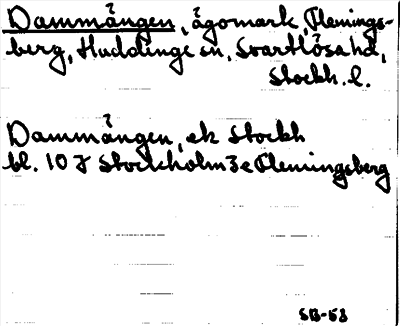 Dammången, ägomark, Flemings-
berg, Huddinge sn, Svartlösa hd,
Stockh. l.
Dammången, ek Stockh
bl. 10 J Stockholm 3e Flemingsberg
SB-58